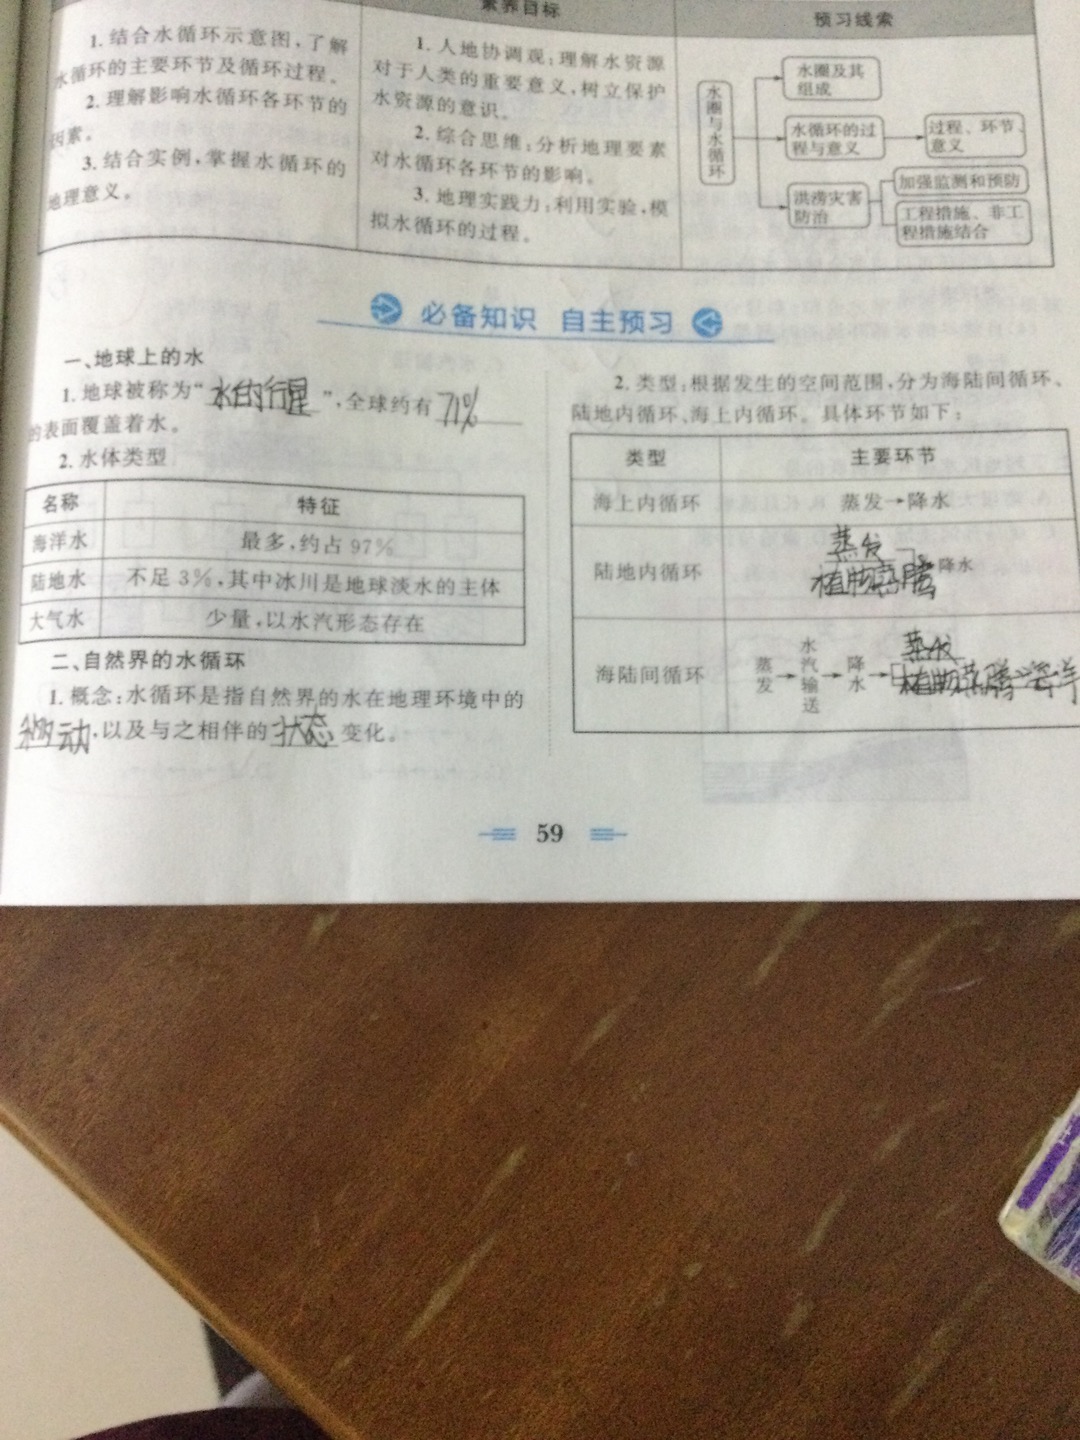 素养目标
预习线索
1.结合水循环示意图,了解
水循环的主要环节及循环过程。
2.理解影响水循环各环节的
因素。
3.结合实例,掌握水循环的
地理意义。
1.人地协调观:理解水资源
对于人类的重要意义,树立保护
水资源的意识。
2.综合思维:分析地理要素
对水循环各环节的影响。
3.地理实践力:利用实验,模
拟水循环的过程。
水圈与水循环
水圈及其
组成
水循环的过
程与意义
过程、环节、
意义
洪涝灾害
防治
加强监测和预防
工程措施、非工
程措施结合
必备知识 自主预习
一、地球上的水
1.地球被称为“水的行星”,全球约有71%
的表面覆盖着水。
2.水体类型
名称 特征
海洋水 最多,约占97%
陆地水 不足3%,其中冰川是地球淡水的主体
大气水 少量,以水汽形态存在
二、自然界的水循环
1.概念:水循环是指自然界的水在地理环境中的
移动,以及与之相伴的状态变化。
2.类型:根据发生的空间范围,分为海陆间循环、
陆地内循环、海上内循环。具体环节如下:
类型 主要环节
海上内循环 蒸发→降水
陆地内循环 蒸发 植物蒸腾 降水
海陆间循环 蒸发→水汽输送→降水→蒸发 植物蒸腾 海洋
59